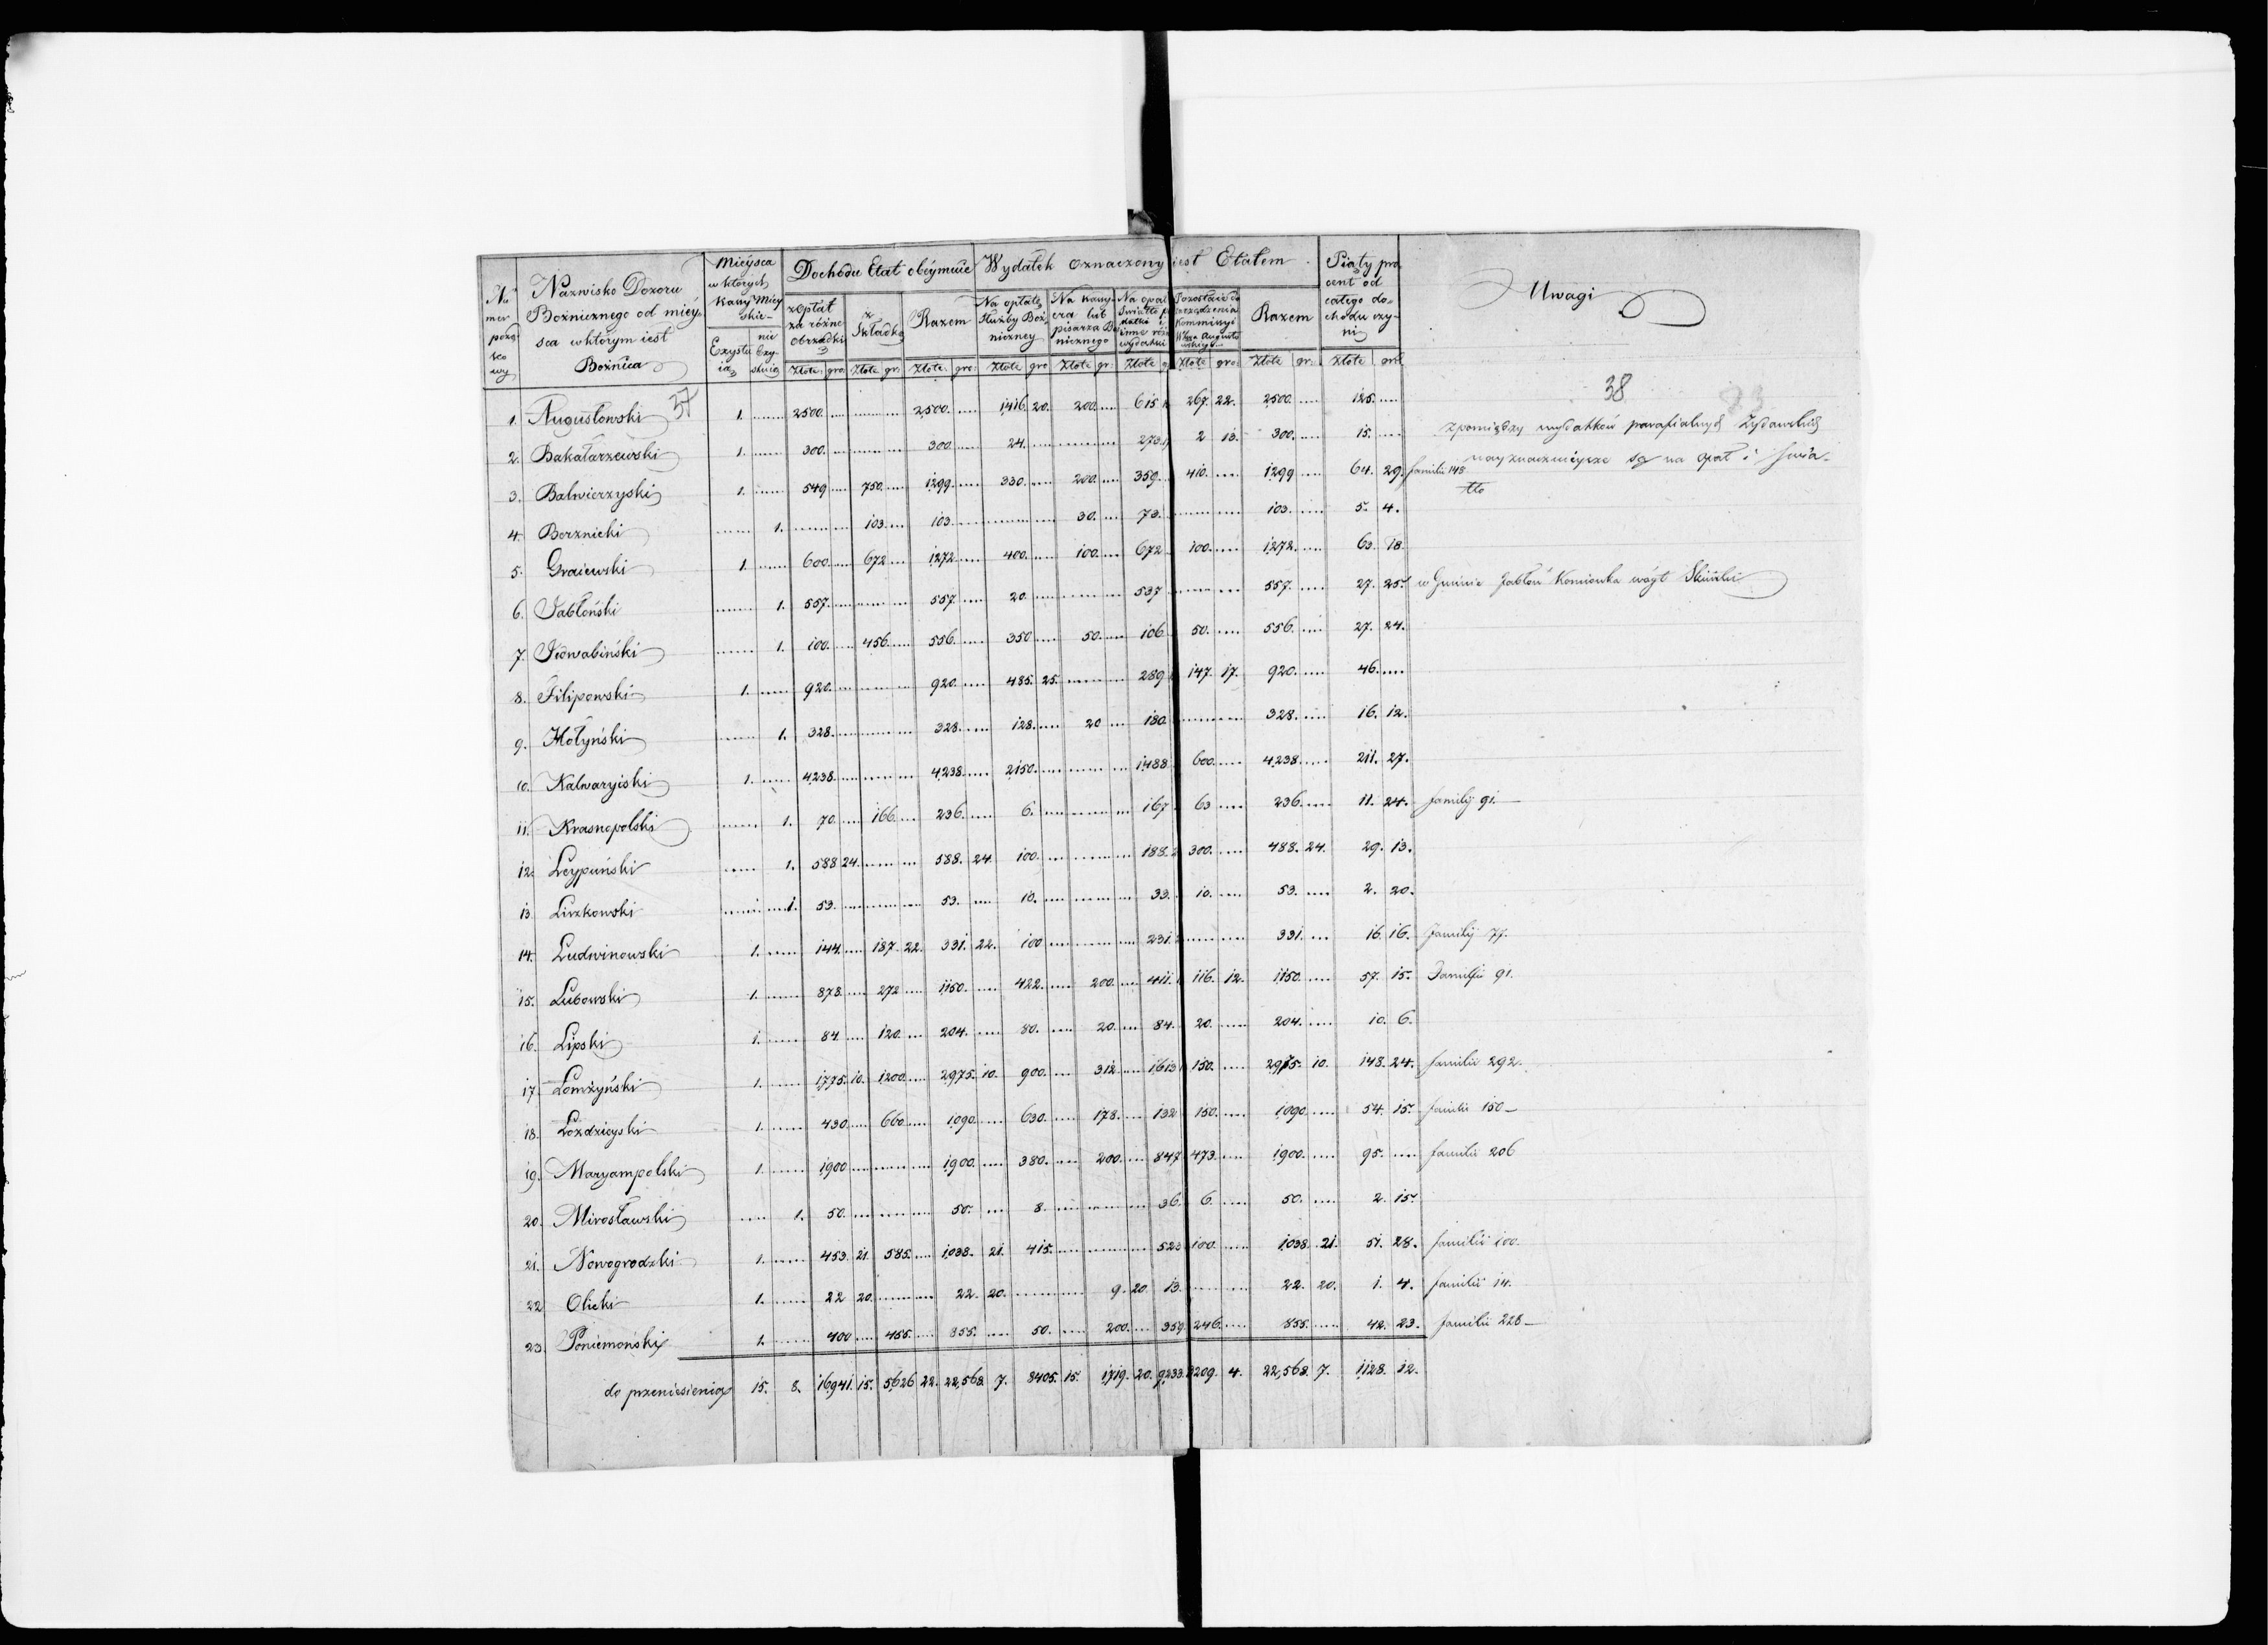 Nu mer porząd kowy | Nazwisko Dozoru Bożnicznego od mieysca w którym iest Bożnica | Mieysca w których Kassy Miey skie | Dochodu Etat obeymuie | Wydatek oznaczony iest Etatem | Piąty pro cent od całego do chodu czy ni | Uwagi
Exystu ią | nie Exy stuią | z Opłat za różne obrządki | z Składki | Razem | Na opłatę Służby Boż niczney | Na Kassy era lub pisarza Bo nicznego | Na opał Swiatło po datki i inne róż wydatki | Pozostaie do rozrządzenia Kommissyi Wdztwa Augusto wskiego | Razem
Złote gro: | Złote gr: | Złote gro: | Złote gro | Złote gr: | Złote g | Złote gro: | Złote gr: | Złote gr:
37 38
1. Augustowski 1. 2500. 2500. 1416. 20. 200. 615 267. 22. 2500. 125.
z pomiędzy wydatków parafialnych Żydowskich
2. Bakałarzewski 1. 300. 300. 24. 273. 2 13. 300. 15.
nayznacznieysze są na opał i Swia-
tło
3. Balwierzyski 1. 549 750. 1299. 330. 200. 359. 410. 1299 64. 29. familii 148
4. Berznicki 1. 103. 103. 30. 73. 103. 5. 4.
5. Graiewski 1. 600. 672 1272. 400. 100. 672 100. 1272. 63. 18.
6. Jabłoński 1. 557. 557. 20. 537 557. 27. 25. w Gminie Jabłoń
7. Jedwabiński 1. 100. 456. 556. 350 50. 106. 50. 556. 27. 24.
8. Filipowski 1. 920. 920. 485. 25. 289 147. 17. 920. 46.
9. Hołyński 1. 328. 328. 128. 20 180. 328. 16. 12.
10. Kalwaryiski 1. 4238. 4238. 2150. 1488 600. 4238. 211. 27.
11. Krasnopolski 1. 70. 166. 236. 6. 167 63 236. 11. 24. familij 91.
12. Leypuński 1. 588 24. 588. 24. 100. 188. 300. 488. 24. 29. 13.
13. Liszkowski 1. 53. 53. 10. 33. 10. 53. 2. 20.
14. Ludwinowski 1. 144. 187. 22. 331. 22. 100 231. 331. 16. 16. familij 77.
15. Lubowski 1. 878. 272 1150. 422. 200. 411. 116. 12. 1150. 57. 15. Familii 91.
16. Lipski 1. 84. 120. 204. 80. 20. 84. 20. 204. 10. 6.
17. Łomżyński 1. 1775. 10. 1200. 2975. 10. 900. 312 1613 150. 2975. 10. 148. 24. familii 292.
18. Łoździeyski 1. 430. 660. 1090. 630. 178. 132 150. 1090. 54. 15. familii 150
19. Maryampolski 1. 1900 1900. 380. 200. 847 473. 1900. 95. familii 206
20. Mirosławski 1. 50. 50. 8. 36. 6. 50. 2. 15.
21. Nowogrodzki 1. 453. 21. 585. 1038. 21. 415. 523 100. 1038. 21. 51. 28. familii 100.
22 Olicki 1. 22 20. 22. 20. 9. 20 13. 22. 20. 1. 4. familii 14.
23. Poniemoński 1. 400 455. 855. 50. 200. 359. 246. 855. 42. 23. familii 228
do przeniesienia 15. 8. 16941. 15. 5626 22. 22,568. 7. 8405. 15. 1719. 20. 9233. 3209. 4. 22,568. 7. 1128. 12.